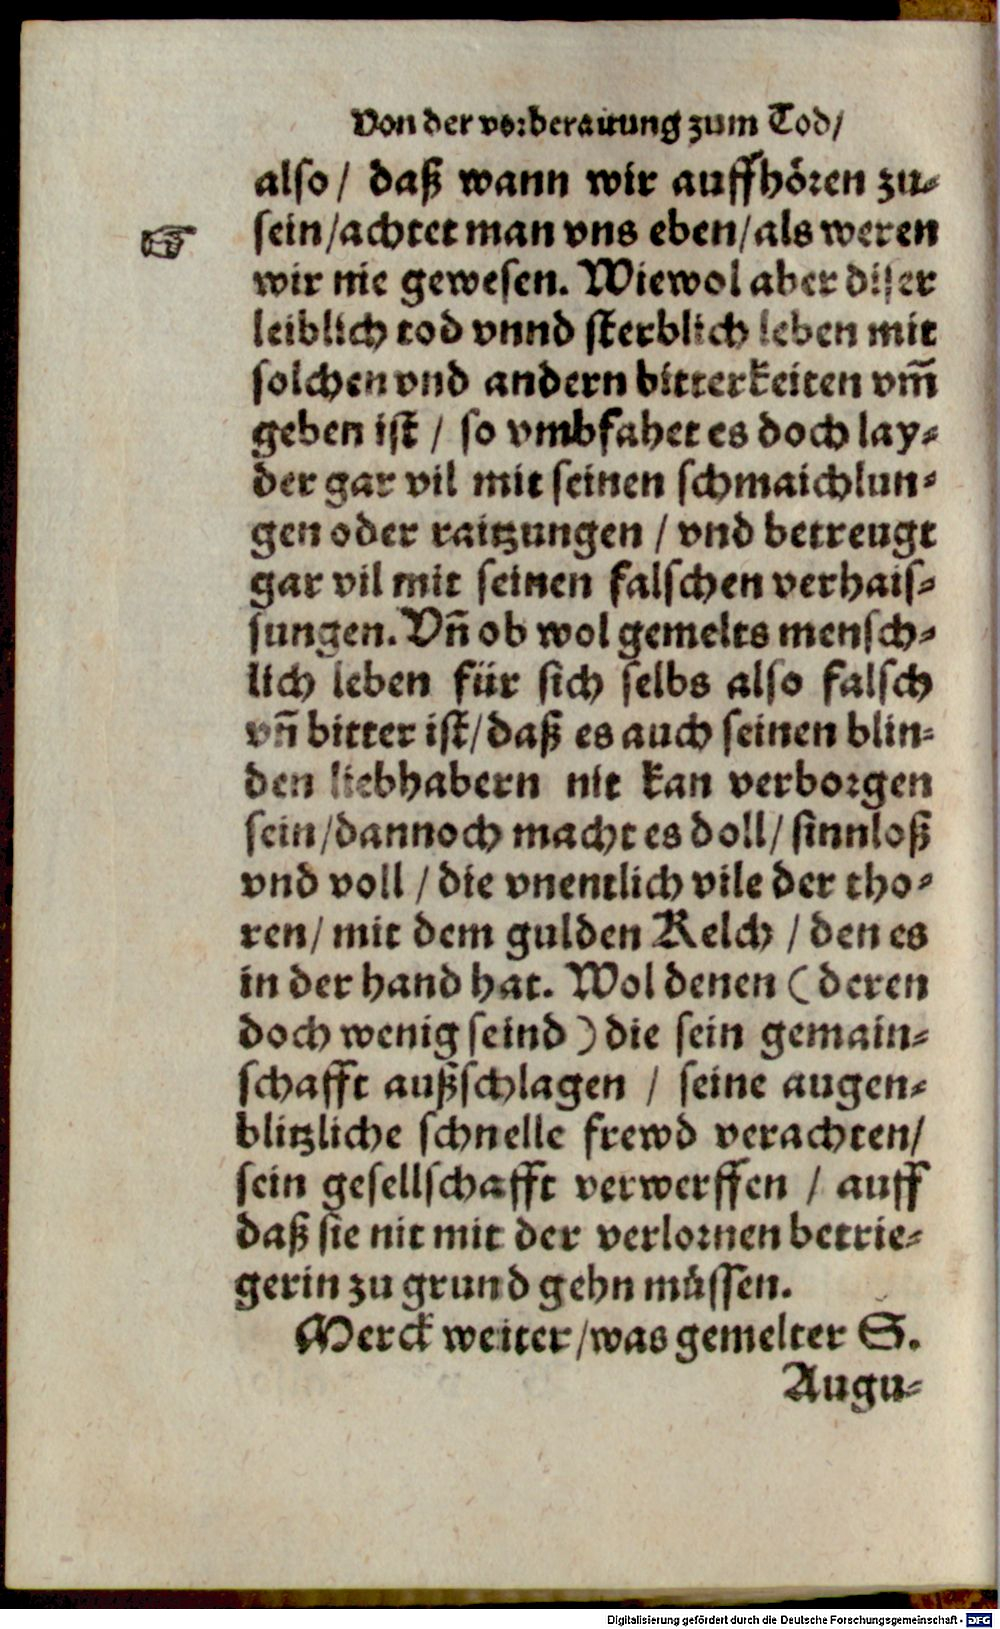 Von der vorberaitung zum Tod/
also/ daß wann wir auffhören zu-
sein/achtet man vns eben/als weren
wir nie gewesen. Wiewol aber diser
leiblich tod vnnd sterblich leben mit
solchen vnd andern bitterkeiten vm̃
geben ist / so vmbfahet es doch lay-
der gar vil mit seinen schmaichlun-
gen oder raitzungen / vnd betreugt
gar vil mit seinen falschen verhais-
sungen. Vñ ob wol gemelts mensch-
lich leben für sich selbs also falsch
vñ bitter ist/daß es auch seinen blin-
den liebhabern nit kan verborgen
sein/dannoch macht es doll/ sinnloß
vnd voll / die vnentlich vile der tho-
ren/ mit dem gulden Kelch / den es
in der hand hat. Wol denen (deren
doch wenig seind) die sein gemain-
schafft außschlagen / seine augen-
blitzliche schnelle frewd verachten/
sein gesellschafft verwerffen / auff
daß sie nit mit der verlornen betrie-
gerin zu grund gehn müssen.
Merck weiter/was gemelter S.
Augu-
Digitalisierung gefördert durch die Deutsche Forschungsgemeinschaft - DFG